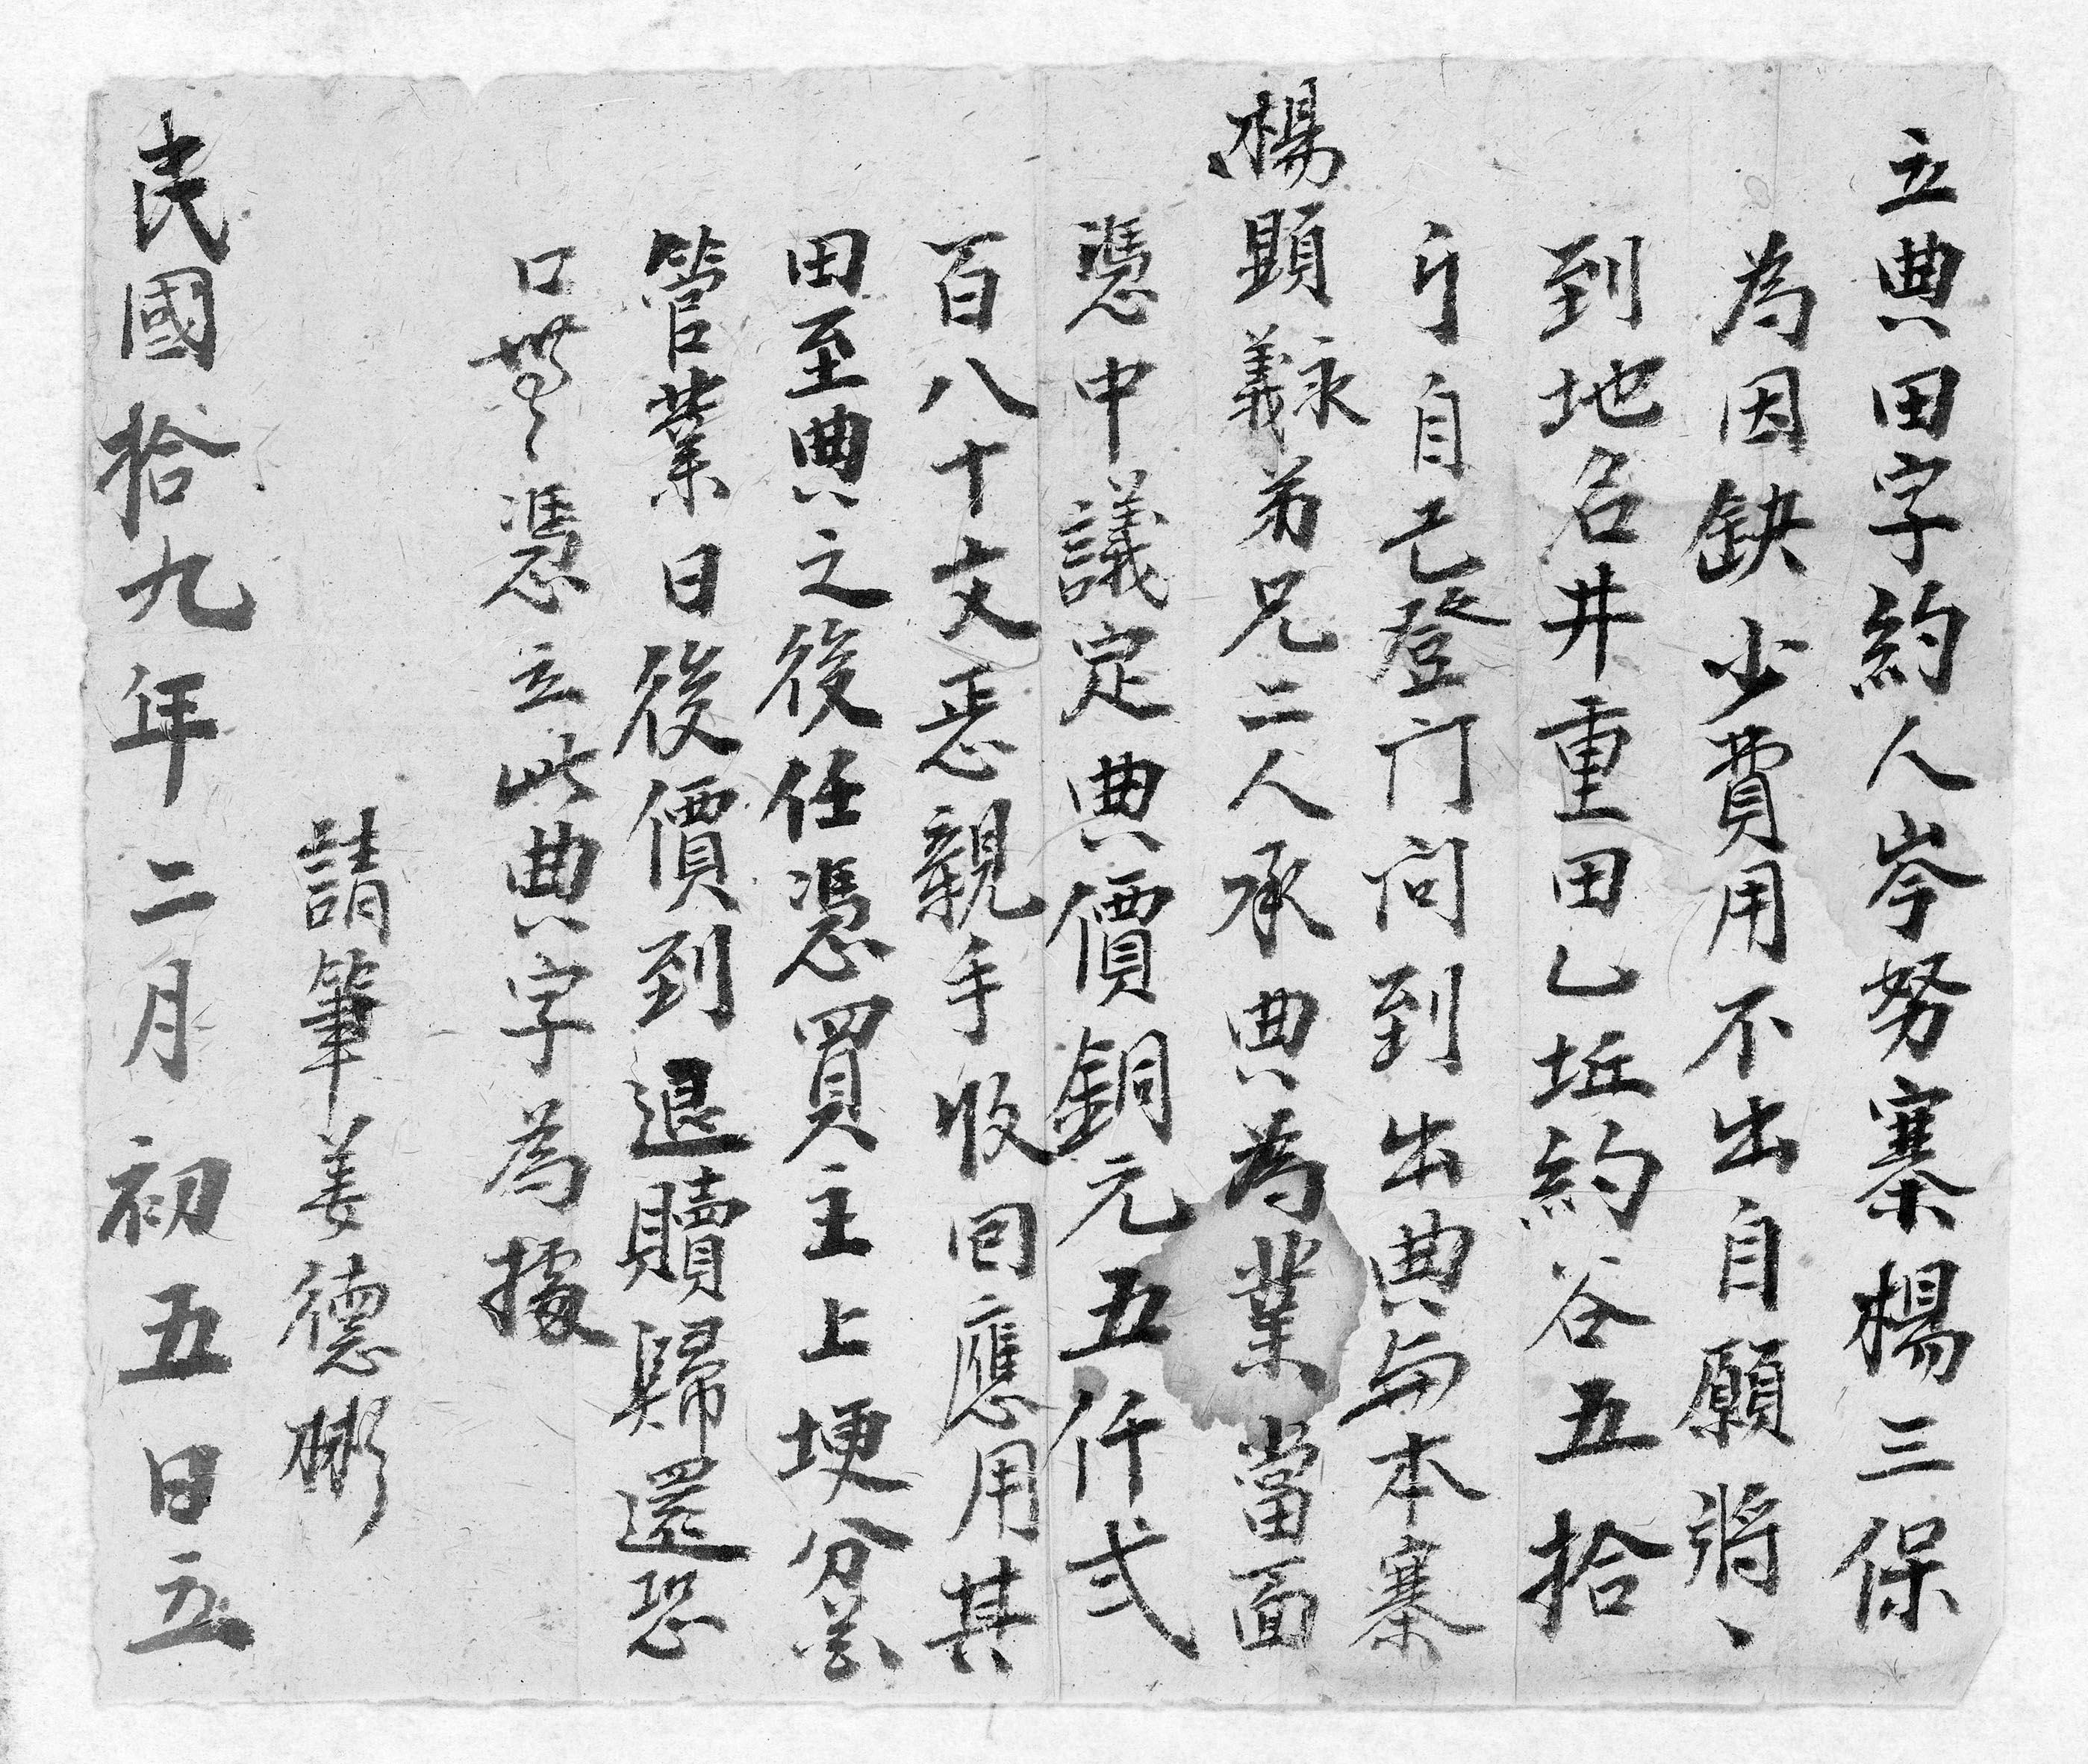 立典田字約人岑努寨楊三保
為因缺少費用不出自願將、
到地名井重田乙坵約谷五拾
亍自己登门问到出典與本寨
楊顕永義弟兄二人承典為業當面
憑中議定典價銅元五仟弍
百八十文丟親手收囘應用其
田至典之後任憑買主上埂分
管業日後價到退贖歸還恐
口無憑立此典字為據
請筆姜德彬
民國拾九年二月初五日立